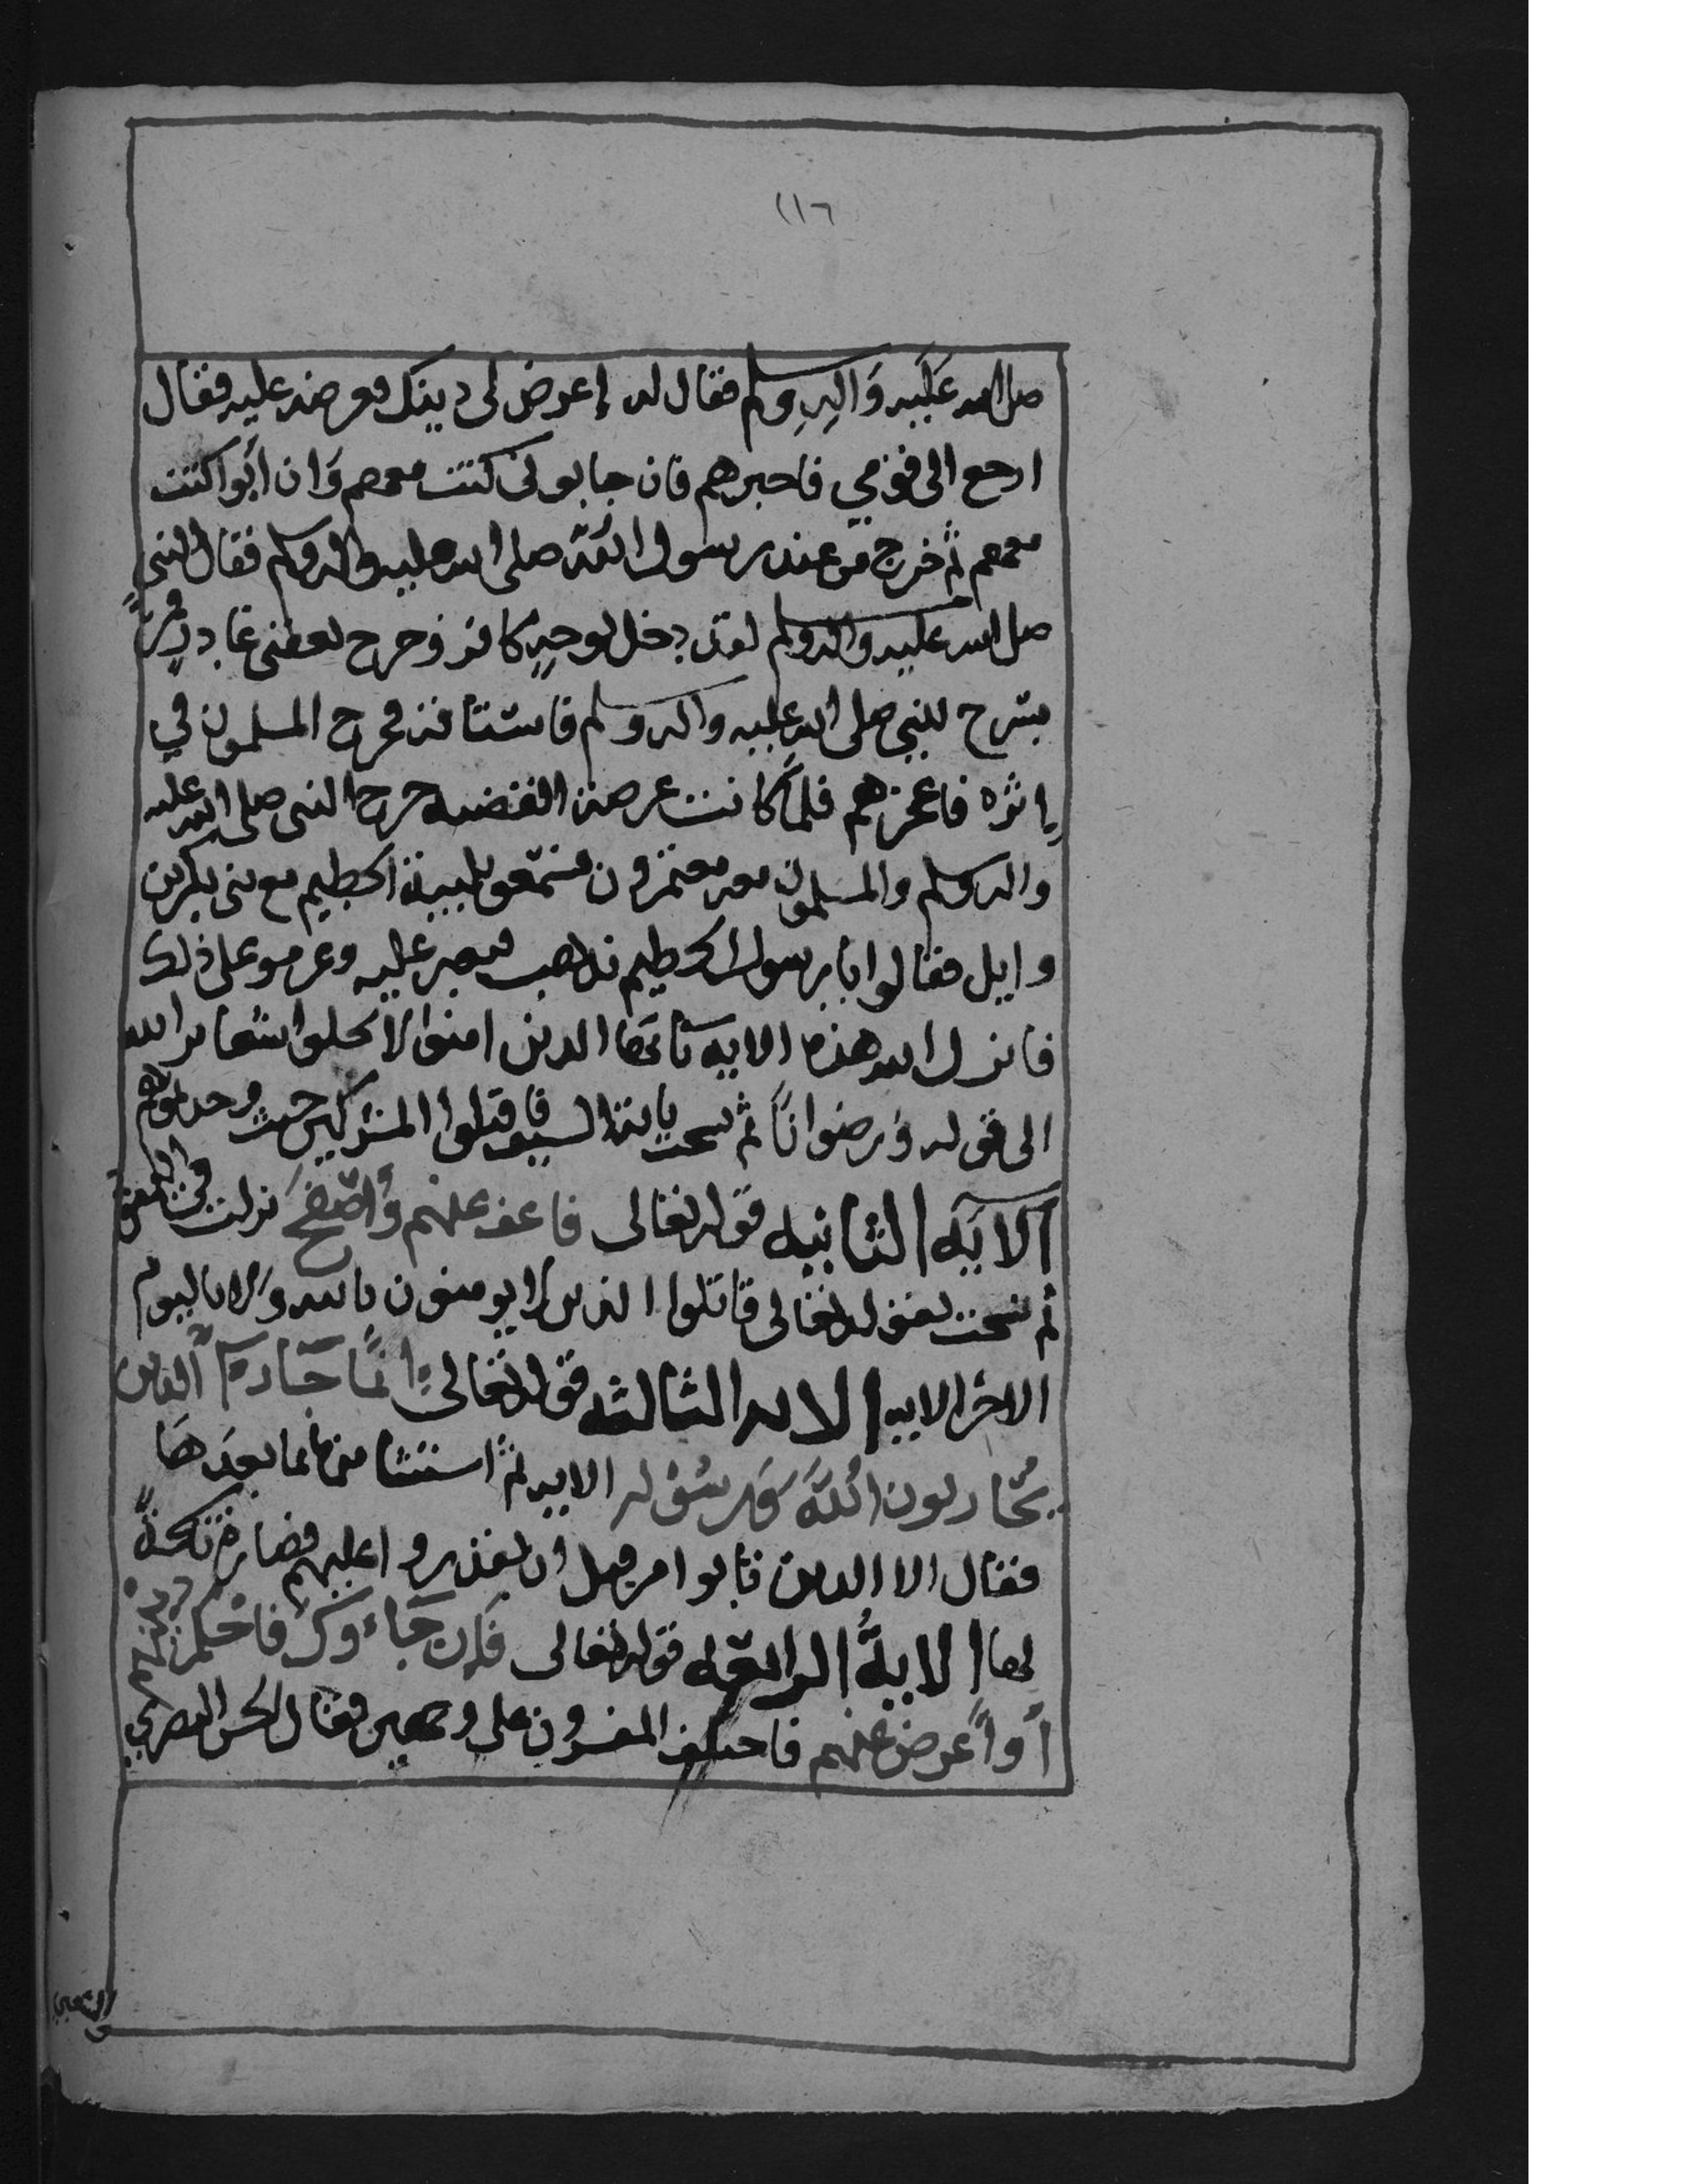 ١١٦
صلى الله عليه وآله وسلم فقال له إعرض لي دينك فعرضه عليه فقال
ارجع الى قومي فاخبرهم فان جابوني كنت معهم وان ابوا كنت
معهم ثم خرج من عند رسول الله صلى الله عليه واله وسلم فقال النبي
صلى الله عليه واله وسلم لقد دخل بوجه كافر وخرج بعقبي غادر فمر
بسرح للنبي صلى الله عليه واله وسلم فاستاقه فخرج المسلمون في
إثره فاعجزهم فلما كانت عرصة القضيه خرج النبي صلى الله عليه
واله وسلم والمسلمون معه معتمرون فسمعوا تلبية الحطيم مع بني بكر بن
وايل فقالوا يا رسول الحطيم نذهب فنغير عليه وعزموا على ذلك
فانزل الله هذه الايه يا يها الذين امنوا لا تحلوا شعاير الله
الى قوله ورضوانا ثم نسخت باية السيف فاقتلوا المشركين حيث وجدتموهم
الآيه الثانيه قوله تعالى فاعف عنهم واصفح نزلت في اليهود
ثم نسخت بقوله تعالى قاتلوا الذين لا يومنون بالله ولا باليوم
الاخر الايه الايه الثالثه قوله تعالى إنما جزاء الذين
يحاربون الله ورسوله الايه ثم استثنا منها بما بعدها
فقال الا الذين تابوا من قبل ان تقدروا عليهم فصارت ناسخةً
لها الاية الرابعه قوله تعالى فإن جاءوك فاحكم بينهم
أو أعرض عنهم فاختلف المفسرون على وجهين فقال الحسن البصري
والشعبي